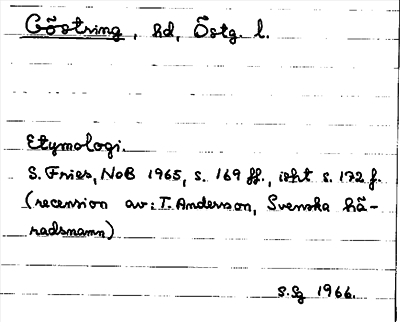 Göstring, hd, Östg. l.
Etymologi.
S. Fries, NoB 1965, s. 169 ff., isht s. 172 f.
(recension av: T. Andersson, Svenska hä-
radsnamn)
S.Sg 1966.